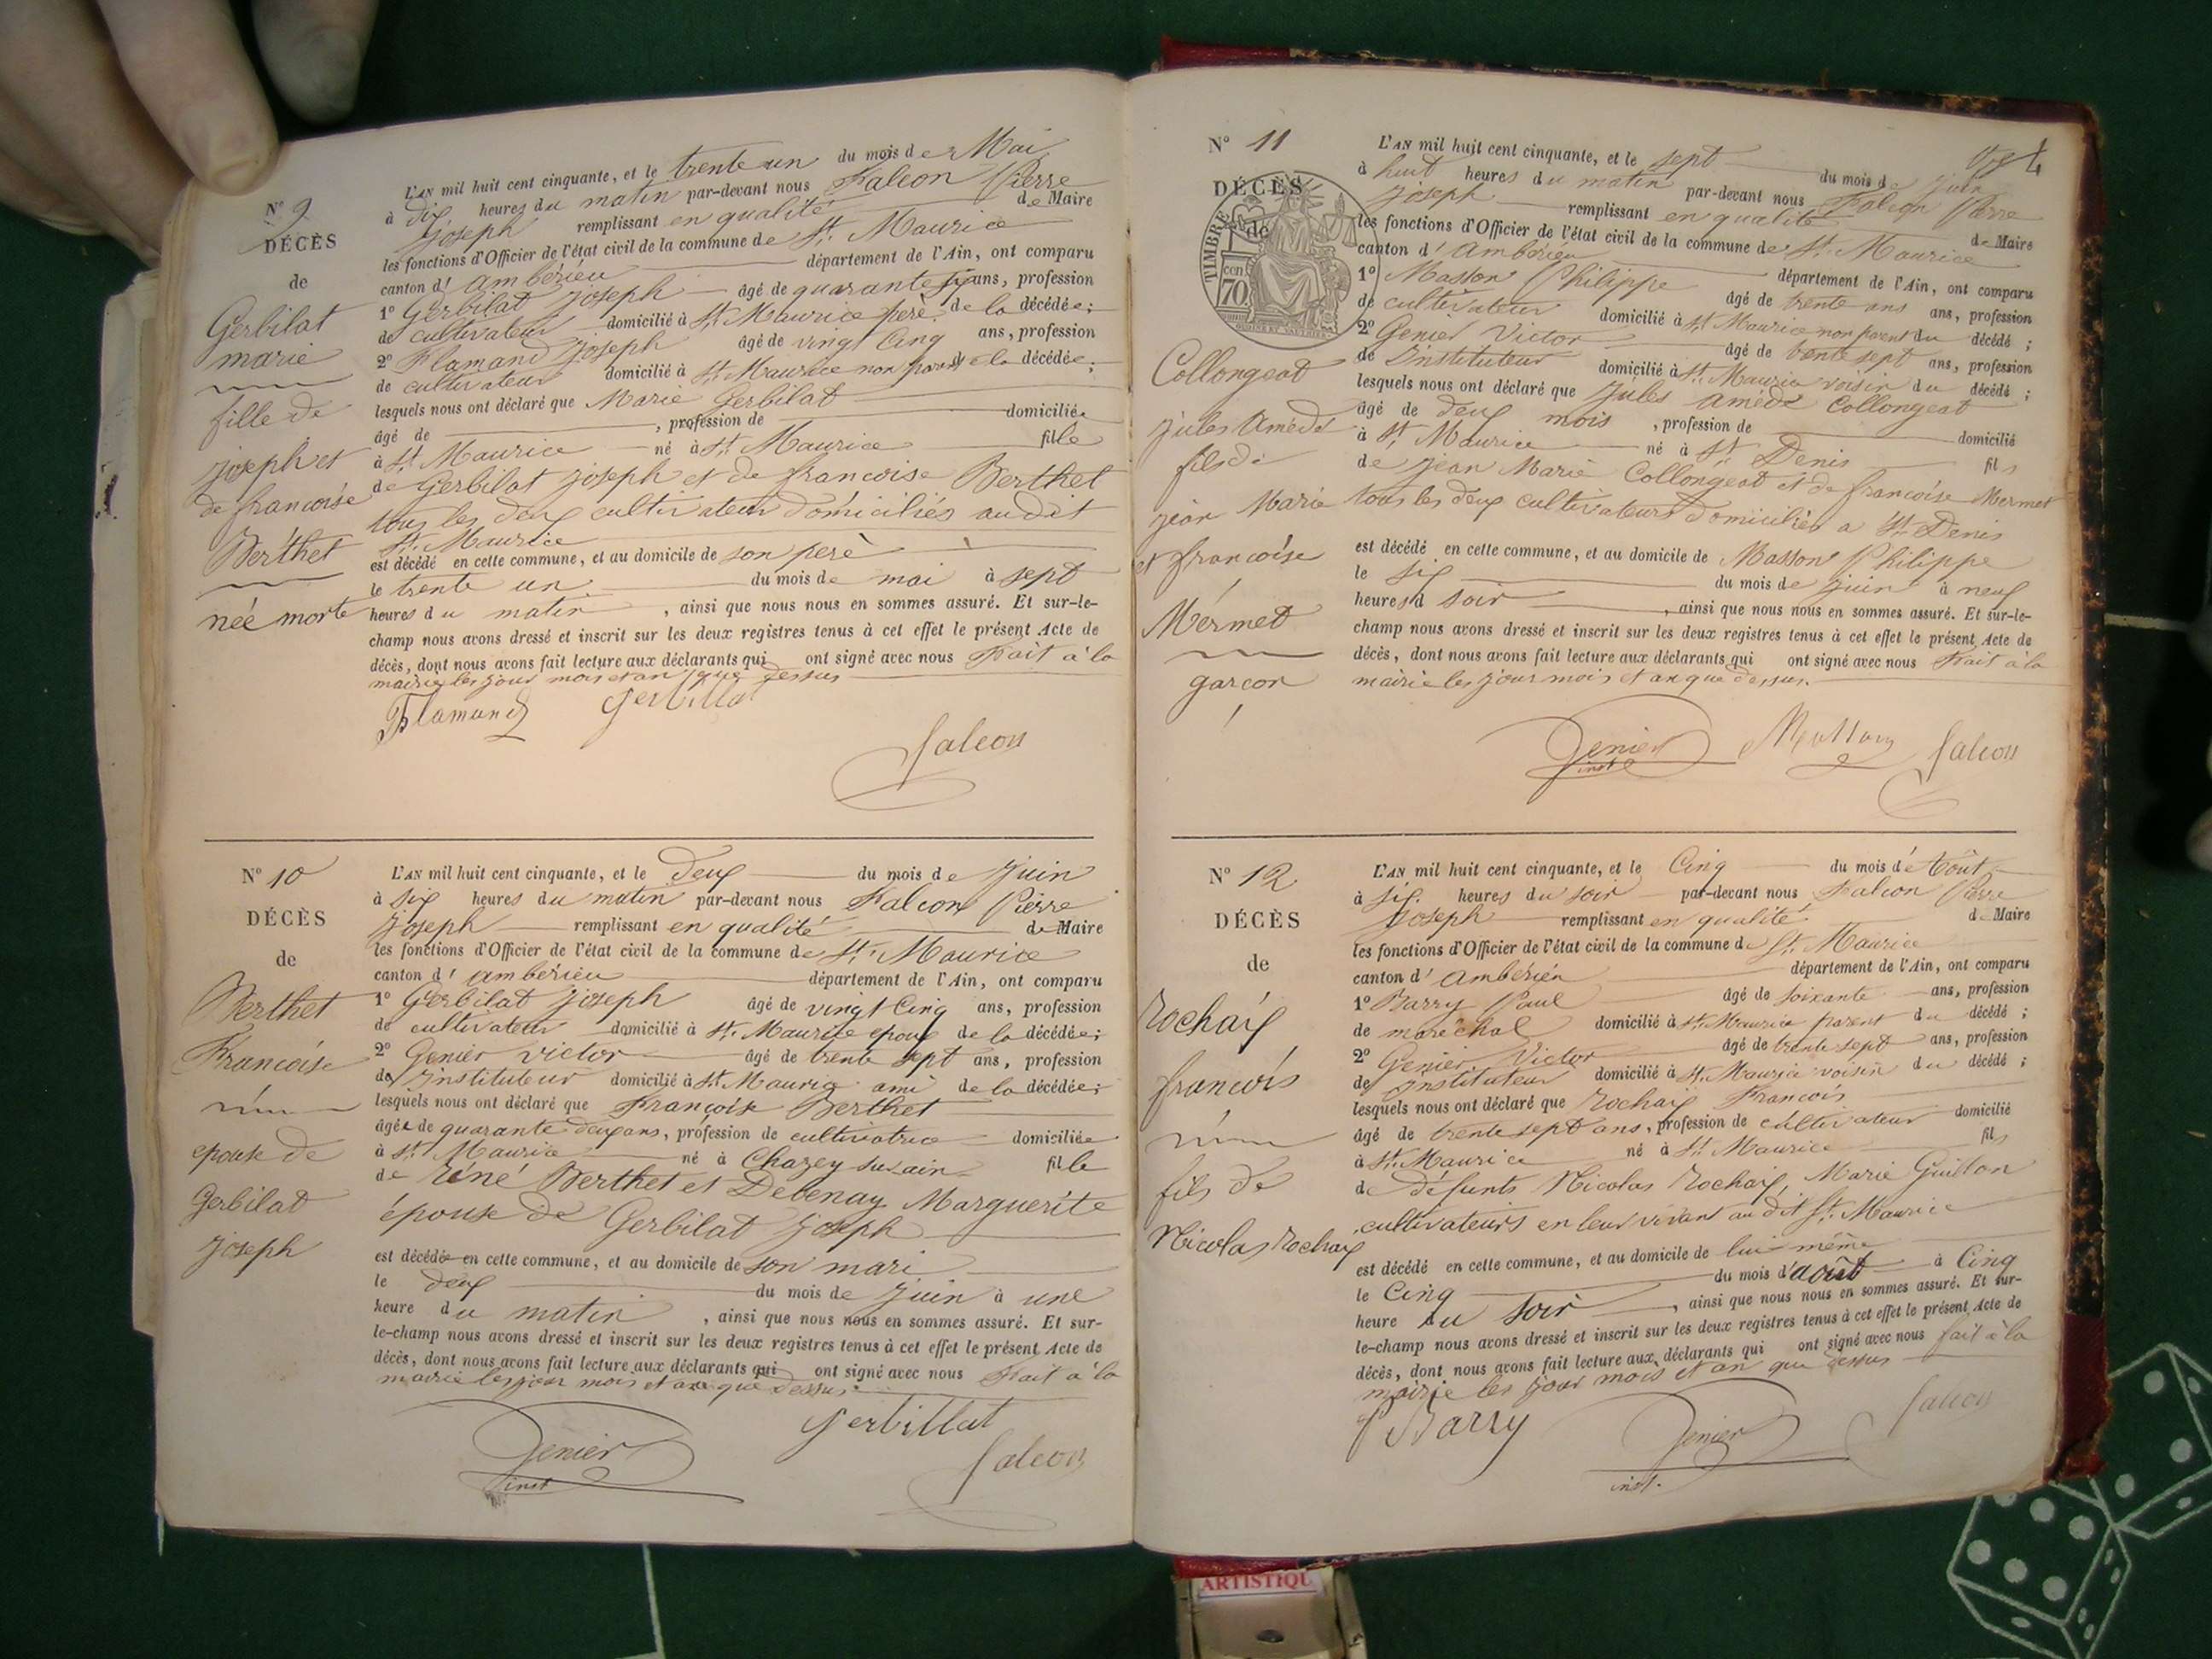 N° 9
DÉCÈS
de
Gerbilat
marie
fille de
joseph et
de francoise
Berthet
née morte
L'AN mil huit cent cinquante, et le trente un du mois de Mai
à dix heures du matin par-devant nous Falcon Pierre
Joseph remplissant en qualité de Maire
les fonctions d'Officier de l'état civil de la commune de St. Maurice
canton d' ambérieu département de l'Ain, ont comparu
1° Gerbilat joseph âgé de quarante ans, profession
de cultivateur domicilié à St. Maurice père de la décédée;
2° Flamand joseph âgé de vingt Cinq ans, profession
de cultivateur domicilié à St. Maurice non parent de la décédée;
lesquels nous ont déclaré que Marie Gerbilat
âgé de , profession de domiciliée
à St. Maurice né à St. Maurice fille
de Gerbilat joseph et de francoise Berthet
tous les deux cultivateur domiciliés audit
St. Maurice
est décédé en cette commune, et au domicile de son père
le trente un du mois de mai à sept
heures du matin , ainsi que nous nous en sommes assuré. Et sur-le-
champ nous avons dressé et inscrit sur les deux registres tenus à cet effet le présent Acte de
décès, dont nous avons fait lecture aux déclarants qui ont signé avec nous Fait à la
mairie les jour mois et an que dessus
Flamand Gerbillat
falcon
N° 10
DÉCÈS
de
Berthet
Francoise
epouse de
Gerbilat
joseph
L'AN mil huit cent cinquante, et le deux du mois de Juin
à six heures du matin par-devant nous Falcon Pierre
Joseph remplissant en qualité de Maire
les fonctions d'Officier de l'état civil de la commune de St. Maurice
canton d' ambérieu département de l'Ain, ont comparu
1° Gerbilat joseph âgé de vingt Cinq ans, profession
de cultivateur domicilié à St. Maurice epoux de la décédée;
2° Genier victor âgé de trente sept ans, profession
de Instituteur domicilié à St. Maurice ami de la décédée;
lesquels nous ont déclaré que Françoise Berthet
âgée de quarante deux ans, profession de cultivatrice domiciliée
à St. Maurice né à Chazey sur ain fille
de Réné Berthet et Debenay Marguerite
épouse de Gerbilat joseph
est décédée en cette commune, et au domicile de son mari
le deux du mois de Juin à une
heure du matin , ainsi que nous nous en sommes assuré. Et sur-
le-champ nous avons dressé et inscrit sur les deux registres tenus à cet effet le présent Acte de
décès, dont nous avons fait lecture aux déclarants qui ont signé avec nous Fait à la
mairie les jour mois et an que dessus.
Genier Gerbillat
inst falcon
4
N° 11
DÉCÈS
de
TIMBRE
70
Collongeat
jules Amédé
fils de
jean Marie
et francoise
Mermet
garcon
L'AN mil huit cent cinquante, et le sept du mois de Juin
à huit heures du matin par-devant nous Falcon Pierre
Joseph remplissant en qualité de Maire
les fonctions d'Officier de l'état civil de la commune de St. Maurice
canton d' ambérieu département de l'Ain, ont comparu
1° Masson Philippe âgé de trente ans ans, profession
de cultivateur domicilié à St. Maurice non parent du décédé ;
2° Genier Victor âgé de trente sept ans, profession
de Instituteur domicilié à St. Maurice voisin du décédé ;
lesquels nous ont déclaré que jules amédé Collongeat
âgé de deux mois , profession de domicilié
à St. Maurice né à St. Denis fils
de jean Marie Collongeat et de francoise Mermet
tous les deux cultivateurs domiciliés a St. Denis
est décédé en cette commune, et au domicile de Masson Philippe
le six du mois de juin à neuf
heures d soir , ainsi que nous nous en sommes assuré. Et sur-le-
champ nous avons dressé et inscrit sur les deux registres tenus à cet effet le présent Acte de
décès, dont nous avons fait lecture aux déclarants qui ont signé avec nous Fait à la
mairie les jour mois et an que dessus.
Genier Masson falcon
inst
N° 12
DÉCÈS
de
Rochaix
francois
fils de
Nicolas Rochaix
L'AN mil huit cent cinquante, et le Cinq du mois d'Août
à six heures du soir par-devant nous Falcon Pierre
Joseph remplissant en qualité de Maire
les fonctions d'Officier de l'état civil de la commune de St. Maurice
canton d' ambérieu département de l'Ain, ont comparu
1° Barry Paul âgé de soixante ans, profession
de maréchal domicilié à St. Maurice parent du décédé ;
2° Genier Victor âgé de trente sept ans, profession
de Instituteur domicilié à St. Maurice voisin du décédé ;
lesquels nous ont déclaré que Rochaix Francois
âgé de trente sept ans, profession de cultivateur domicilié
à St. Maurice né à St. Maurice fils
de défunts Nicolas Rochaix, Marie Guillon
cultivateurs en leur vivant au dit St. Maurice
est décédé en cette commune, et au domicile de lui même
le Cinq du mois d'août à Cinq
heure du soir , ainsi que nous nous en sommes assuré. Et sur-
le-champ nous avons dressé et inscrit sur les deux registres tenus à cet effet le présent Acte de
décès, dont nous avons fait lecture aux déclarants qui ont signé avec nous fait à la
mairie les jour mois et an que dessus
P Barry Genier falcon
inst.
ARTISTIQU